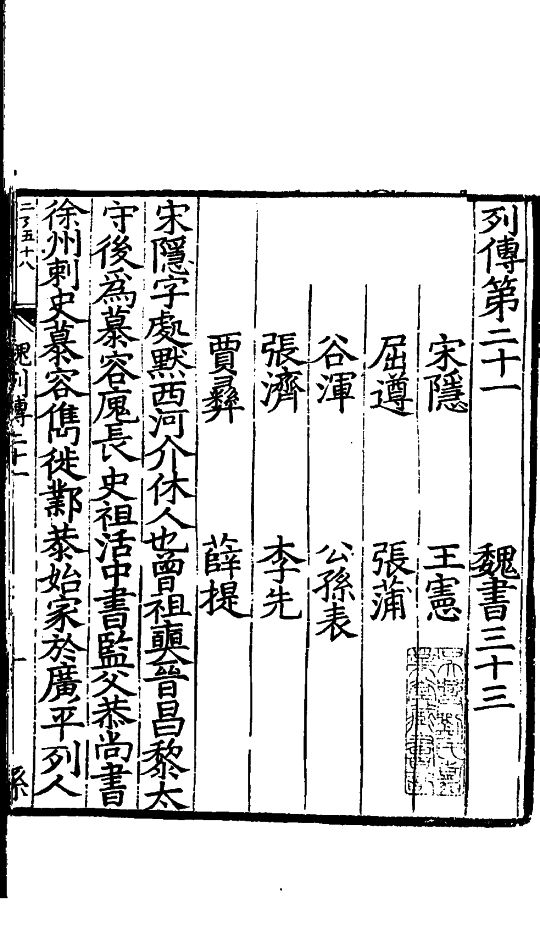 列傳第二十一 魏書三十三
宋隱 王憲
屈遵 張蒲
谷渾 公孫表
張濟 李先
賈彝 薛提
宋隱字處默西河介休人也曾祖奭晉昌黎太
守後爲慕容廆長史祖活中書監父恭尚書
徐州刺史慕容儁徙鄴恭始家於廣平列人
二百五十八
魏列傳二十一
一
孫